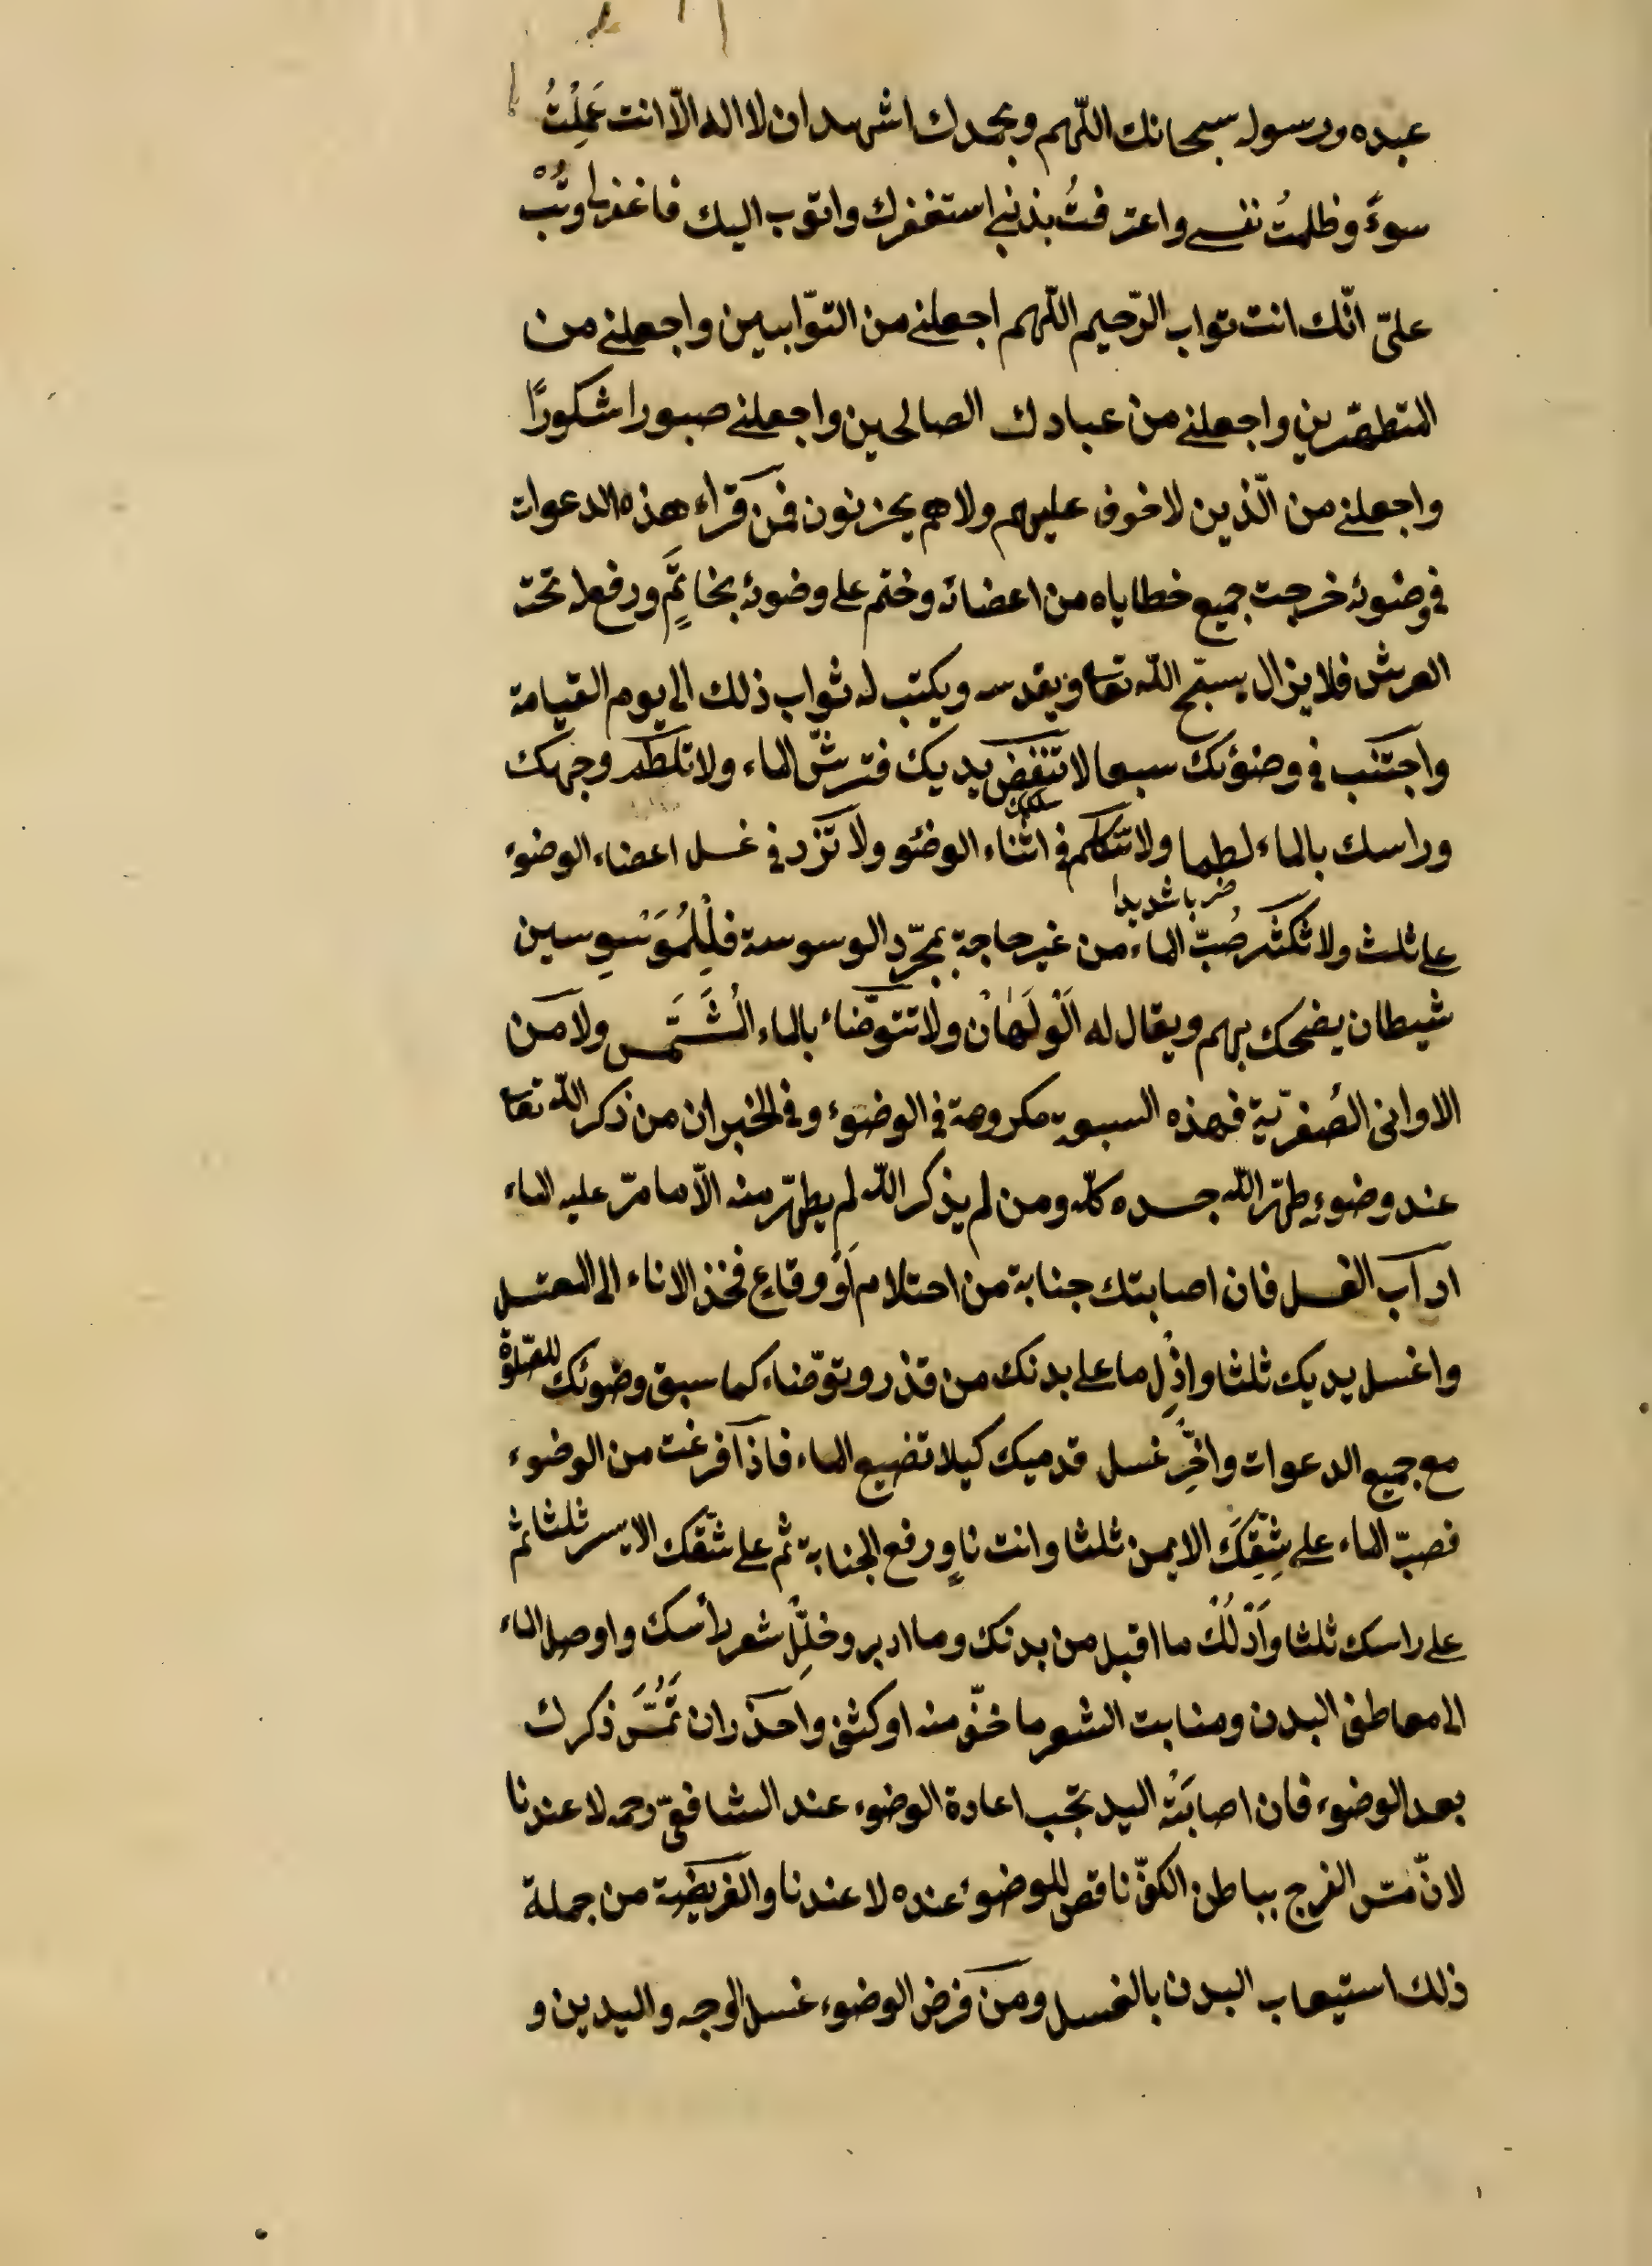 عبده ورسوله سبحانك اللّهم وبحمدك اشهد ان لا اله الّا انت عَمِلْتُ
سوءً وظلمتُ نفسى واعترفتُ بذنبى استغفرك واتوب اليك فاغفرلى وتُبْ
علىّ انّك انت تواب الرّحيم اللّهم اجعلنى من التوّابين واجعلنى من
المتطهّرين واجعلنى من عبادك الصالحين واجعلنى صبورا شكورًا
واجعلنى من الّذين لا خوف عليهم ولا هم يحزنون فمن قراء هذه الدعوات
فى وضوئه خرجت جميع خطاياه من اعضائه وختم على وضوئه بخاتَمٍ ورفع له تحت
العرش فلا يزال يسبّح اللّه تعا ويقدسه ويكتب له ثواب ذلك الى يوم القيامة
واجتنب فى وضوئك سبعا لا تنفض يديك فترشّ الماء ولا تلطم وجهك
وراسك بالماء لطما ولا تتكلم فى اثناء الوضئو ولا تَزِد فى غسل اعضاء الوضوء
ضربا شديدا
على ثلث ولا تكثر صُبّ الماء من غير حاجة بمجرّد الوسوسة فلِلْمُوَسْوِسين
شيطان يضحك بهم ويقال له الَوَلَهَانْ ولا تتوضّاء بالماء الْمُشَمَّس ولا من
الاوانى الصُفريّة فهذه السبعة مكروهة فى الوضوء وفى الخبر ان من ذكر اللّه تعا
عند وضوءه طهّر اللّه جسده كلّه ومن لم يذكر اللّه لم يطهّر منه الّا ما مرّ عليه الماء
اداب الغسل فان اصابتك جنابة من احتلام اَوْ وقاعٍ فخذ الاناء الى المغتسل
واغسل يديك ثلثا واذِل ما على بدنك من قذر وتوضّاء كما سبق وضوئك للصّلوة
مع جميع الدعوات واخِّر غسل قدميك كيلا تضيع الماء فاذا فرغت من الوضوء
فصبّ الماء على شِقِّكَ الايمن ثلثا وانت ناوٍ رفع الجنابة ثم على شقّك الايسر ثلثا ثم
على راسك ثلثا واَدْلُكْ ما اقبل من بدنك وما ادبر وخلِّل شعر رأسك واوصل الماء
الى معاطف البدن ومنابت الشعر ما خفّ منه او كثف واحذر ان تَمُسَّ ذكرك
بعد الوضوء فان اصابَتْه اليد تجب اعادة الوضوء عند الشافعىّ رحمه لا عندنا
لانّ مسّ الفرج بباطن الكفّ ناقص للموضوء عنده لا عندنا والفريضة من جملة
ذلك استيعاب البدن بالغسل ومن فرض الوضوء غسل الوجه واليدين و